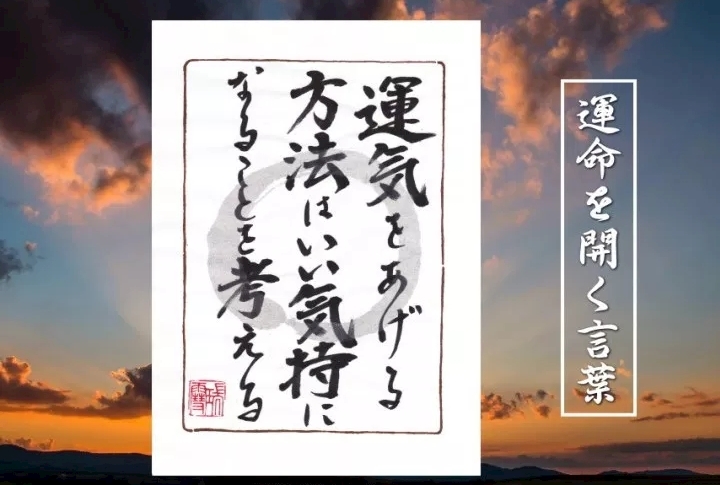 運命を開く言葉
運気をあげる
方法はいい気持に
なることを考える